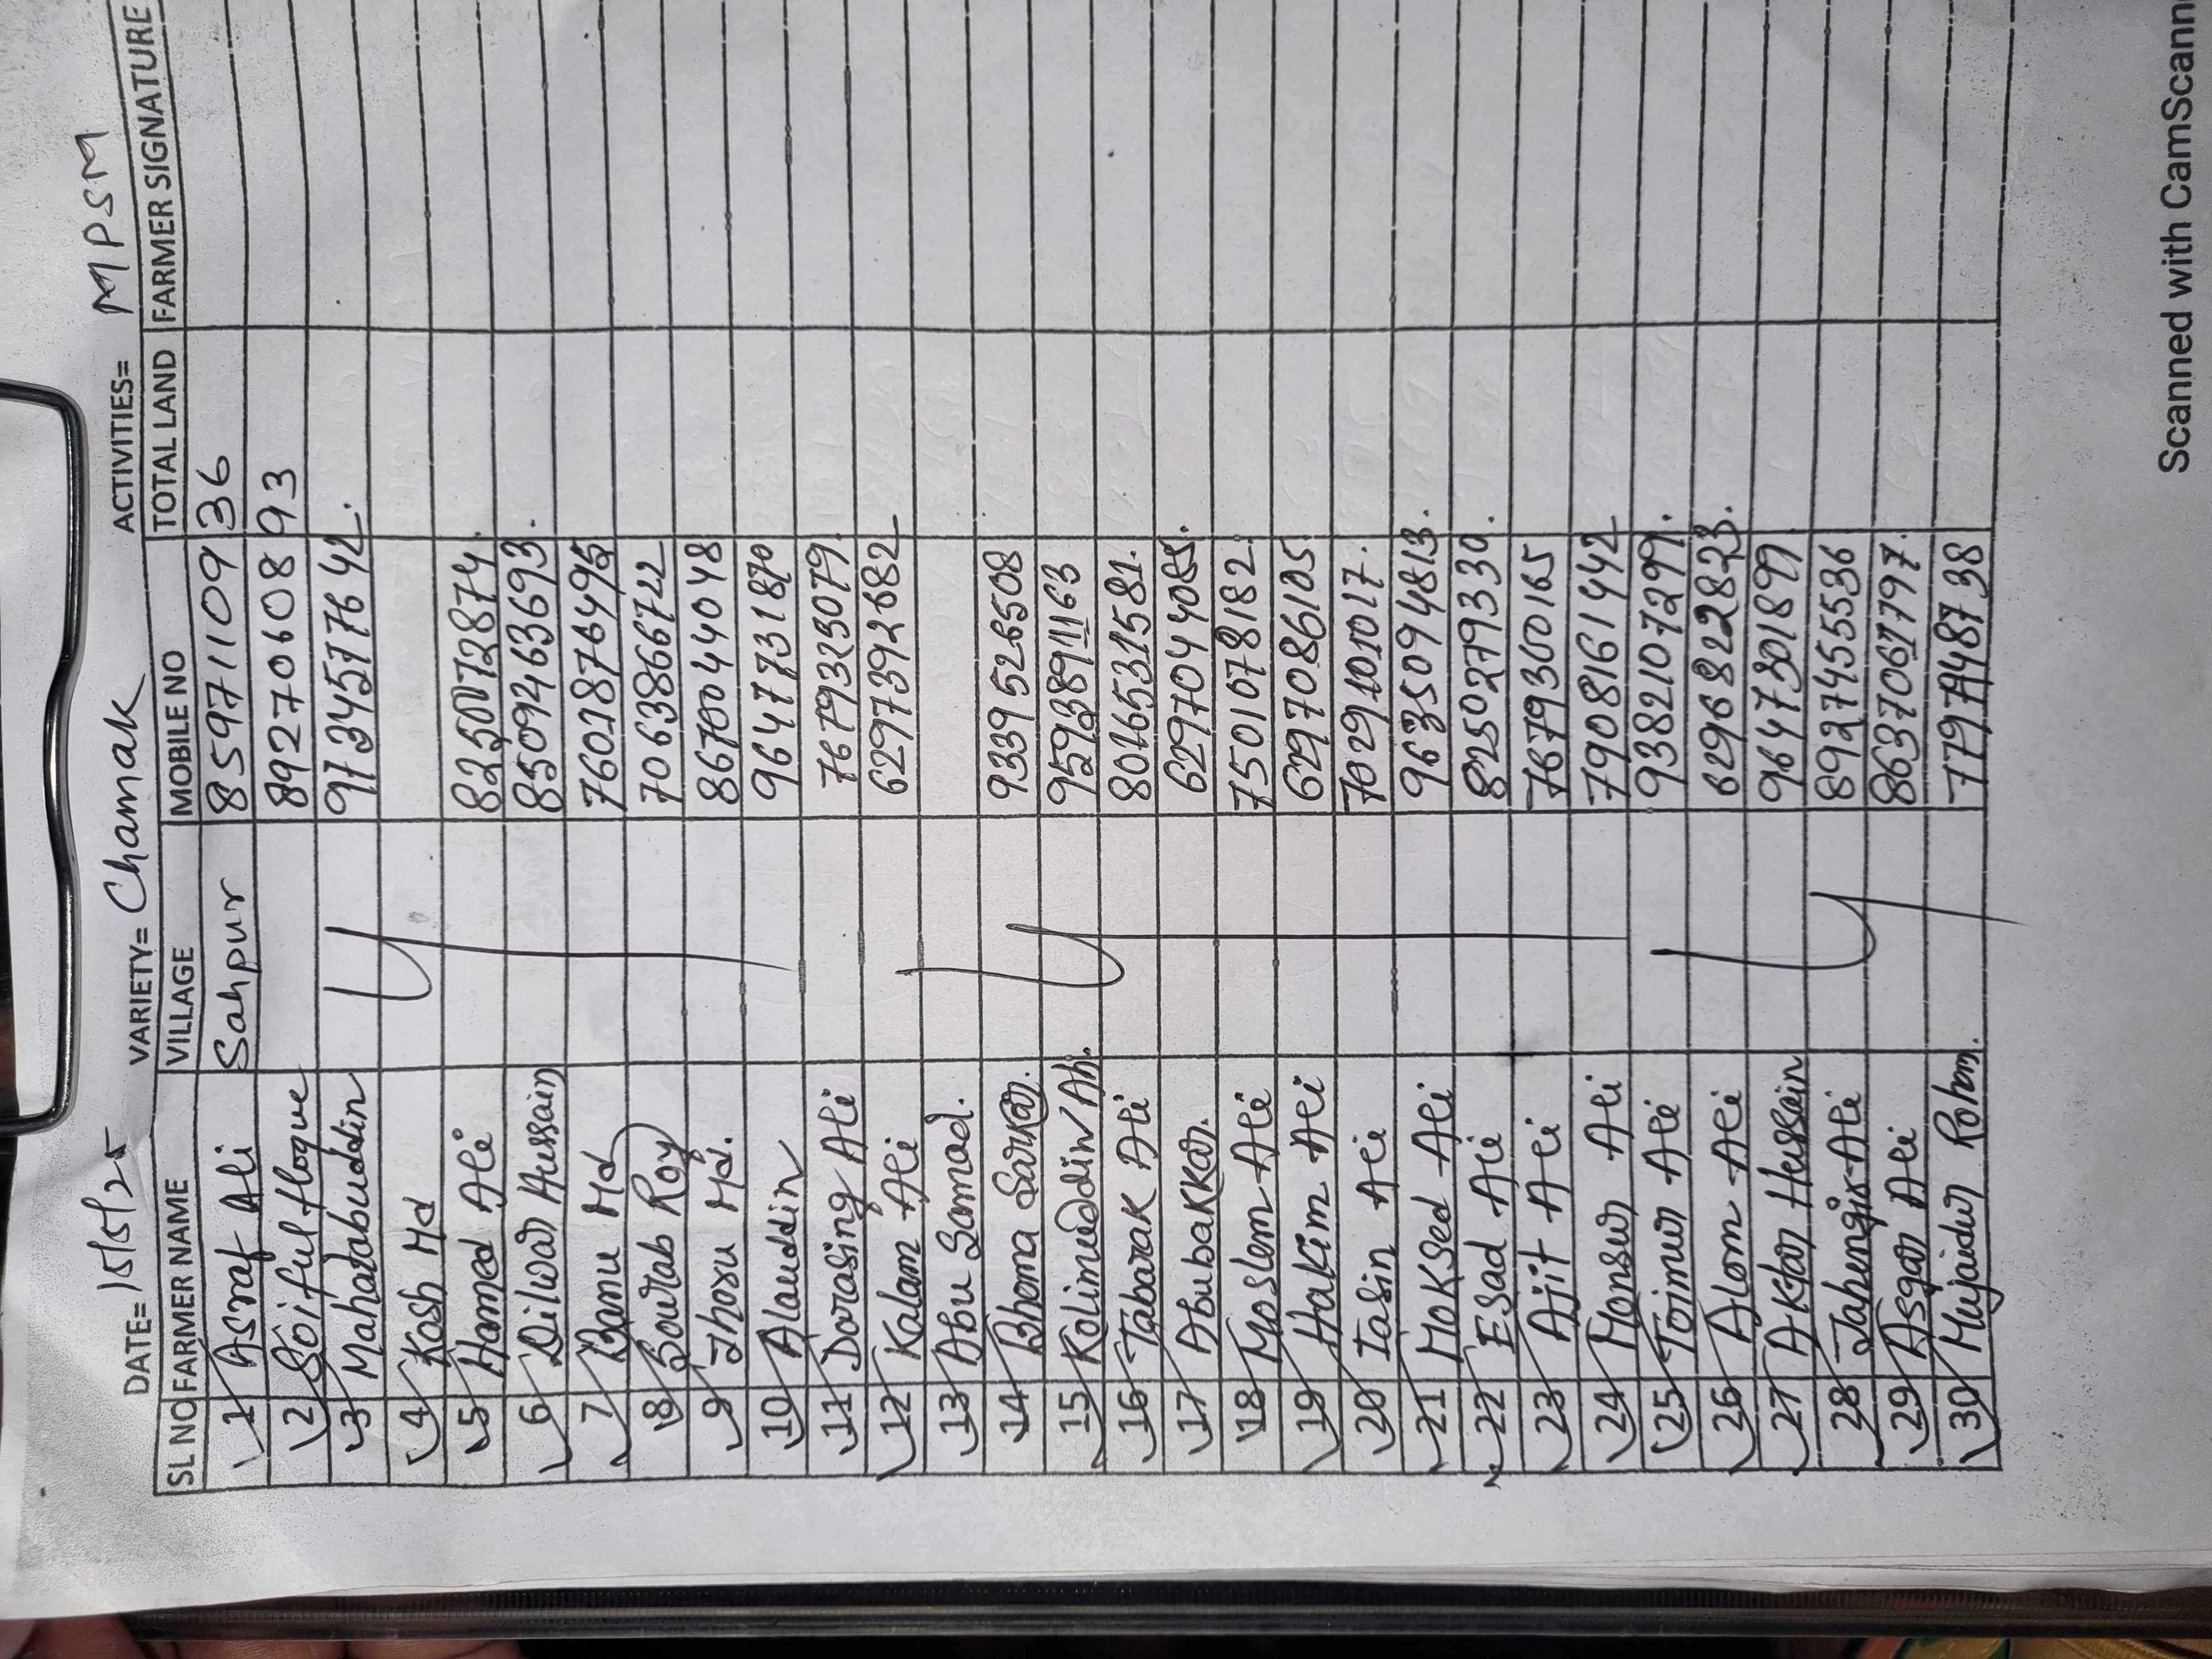 DATE= 15/5/25 VARIETY= Chamak ACTIVITIES= MPSM
SL NO FARMER NAME VILLAGE MOBILE NO TOTAL LAND FARMER SIGNATURE
1 Asraf Ali Sahpur 8597110936
2 Soiful Hoque 8927060893
3 Mahatabuddin 9734577642.
4 Kash Md
5 Hamed Ali 825072874.
6 Dilwar Hussain 8509463693.
7 Banu Md 7602876495
8 Sourab Roy 7063866722
9 Jhoru Md. 8670044048
10 Alauddin 9647731870
11 Dorasing Ali 7679323079.
12 Kalam Ali 6297392682
13 Abu Samad.
14 Bhoma Sarkar. 9339526508
15 Kolimuddin Ah. 9593891163
16 Tabarak Ali 8016531581.
17 Abubakkar. 6297044085.
18 Moslem Ali 7501078182.
19 Hakim Ali 6297086105
20 Iasin Ali 7029101017.
21 Moksed Ali 9635094813.
22 Esad Ali 8250279330.
23 Ajit Ali 7679360165
24 Monsur Ali 7908161442
25 Toimur Ali 9382107299.
26 Alom Ali 6296822823.
27 Aktar Hussain 9647301899
28 Jahengir Ali 8927455536
29 Asgar Ali 8637061797.
30 Mujaidur Rohom. 7797448738
Scanned with CamScann